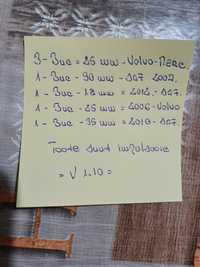 3-Buc = 25 mm - Volvo-Merc
1-Buc - 30 mm - D47 2002.
1-Buc - 18 mm = 2012. - D47.
1-Buc - 25 mm = 2006-Volvo
1-Buc - 35 mm = 2010 - D47.
Toate sunt impulsoare
= √ 1.10 =